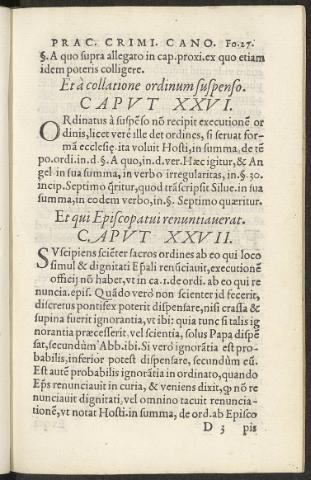 PRAC. CRIMI. CANO. Fo.27.
§. A quo supra allegato in cap.proxi.ex quo etiam
idem poteris colligere.
Et à collatione ordinum suspenso.
CAPVT XXVI.
ORdinatus à suspēso nō recipit executionē or
dinis, licet verè ille det ordines, si seruat for-
mā ecclesię. ita voluit Hosti, in summa, de tē
po.ordi.in.d.§. A quo, in.d.ver. Hæc igitur, & An
gel in sua summa, in verbo irregularitas, in.§.30.
incip. Septimo q̄ritur, quod trāscripsit Silue.in sua
summa, in eodem verbo, in.§. Septimo quæritur.
Et qui Episcopatui renuntiauerat.
CAPVT XXVII.
SVscipiens sciēter sacros ordines ab eo qui loco
simul & dignitati Ep̄ali renūciauit, executionē
officij nō haber, vt in ca.1.de ordi. ab eo qui re
nuncia.epis. Quādo verò non scienter id fecerit,
discretus pontifex poterit dispensare, nisi crassa &
supina fuerit ignorantia, vt ibi: quia tunc si talis ig
norantia præcesserit.vel scientia, solus Papa dispē
sat, secundùm Abb.ibi. Si verò ignorātia est pro-
babilis, inferior potest dispensare, secundùm eū.
Est autē probabilis ignorātia in ordinato, quando
Ep̄s renunciauit in curia, & veniens dixit, q̄ nō re
nunciauit dignitati, vel omnino tacuit renuncia-
tionē, vt notat Hosti.in summa, de ord.ab Episco
D 3 pis